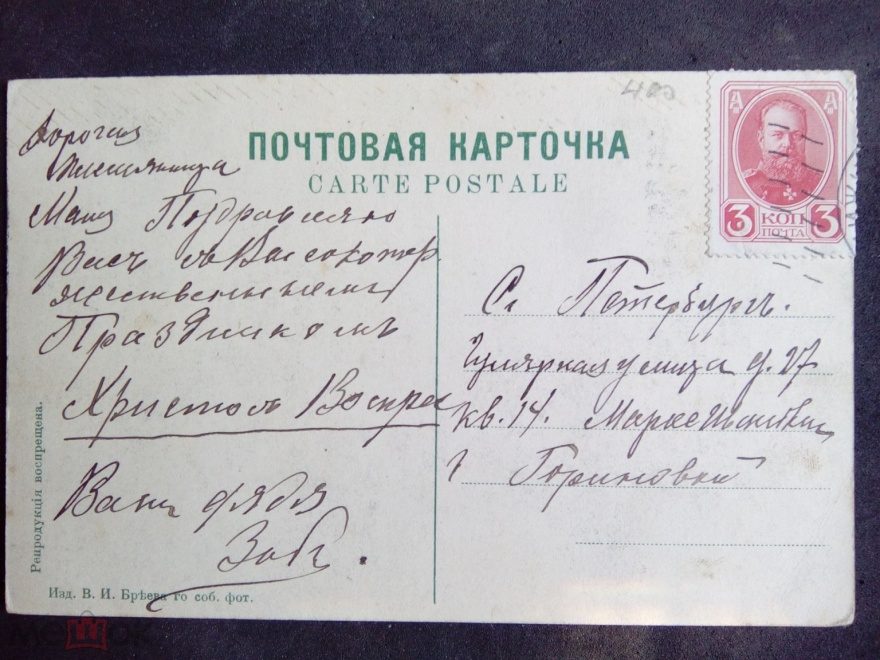 400
ПОЧТОВАЯ КАРТОЧКА
CARTE POSTALE
3 КОП 3
ПОЧТА
Дорогая
Племянница
Маня Поздравляю
Васъ съ Высокотор
жественнымъ
Праздникомъ
Христосъ Воскресе
Вашъ дядя
С. Петербургъ.
Гулярная улица д. 27
кв. 14.
г Гориновой
Репродукція воспрещена.
Изд. В. И. Брѣева го соб. фот.